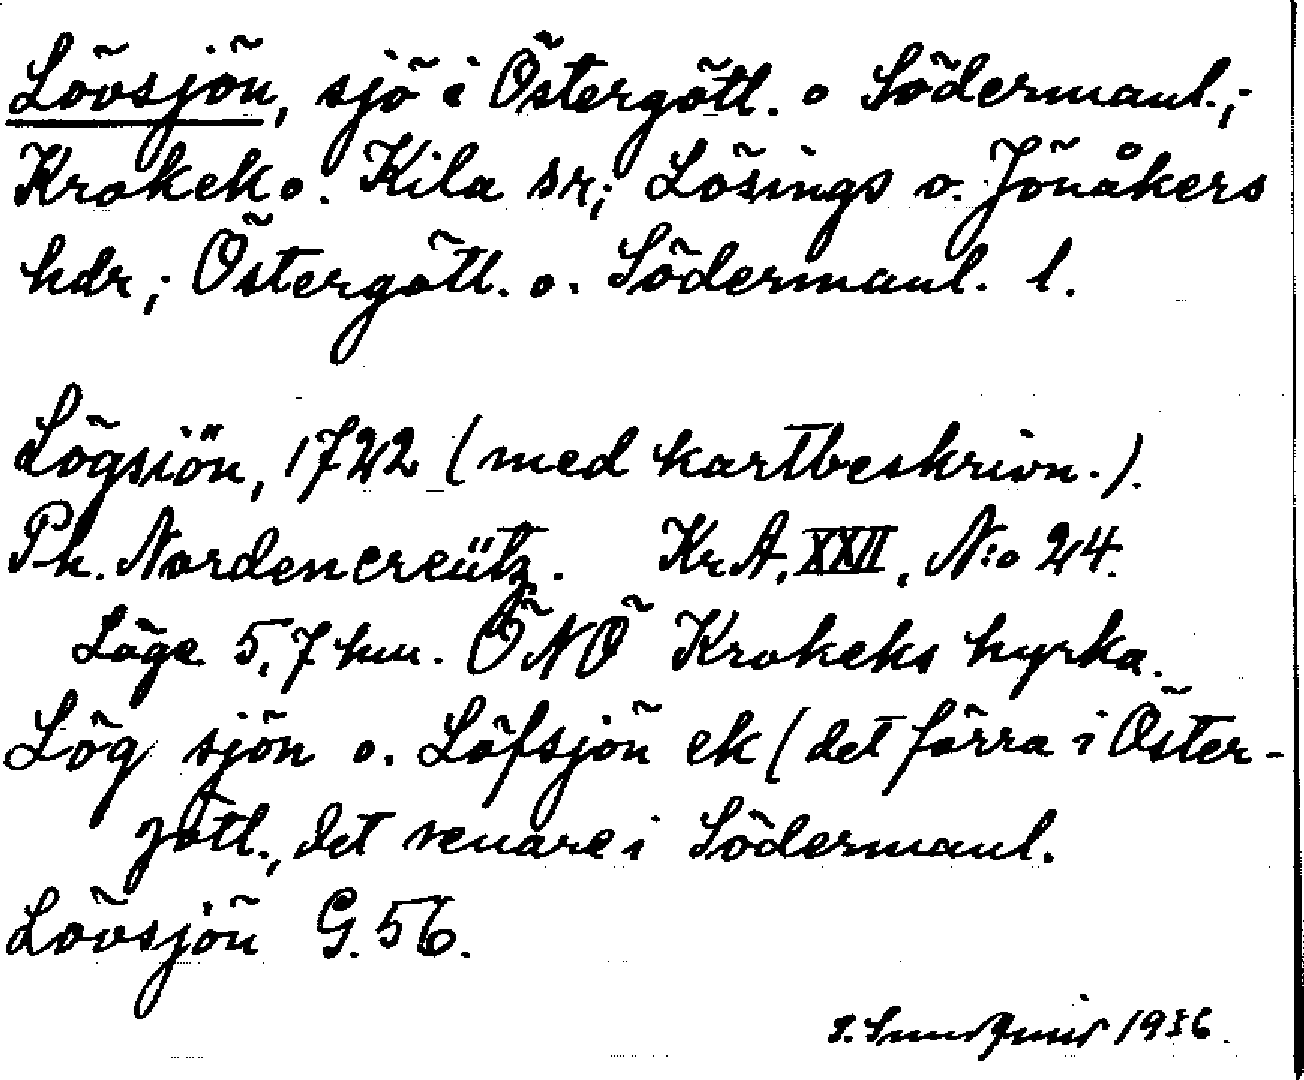 Lövsjön, sjö i Östergötl. o Södermanl.;
Krokek o. Kila sr; Lösings o. Jönåkers
hdr; Östergötl. o. Södermanl. l.
Lögsiön, 1722 (med kartbeskrivn.).
Ph. Nordencreütz. Kr.A. XXII, N:o 24.
Läge 5,7 km. ÖNÖ Krokeks kyrka.
Lög sjön o. Löfsjön ek (det förra i Öster-
götl., det senare i Södermanl.
Lövsjön G. 56.
1936.